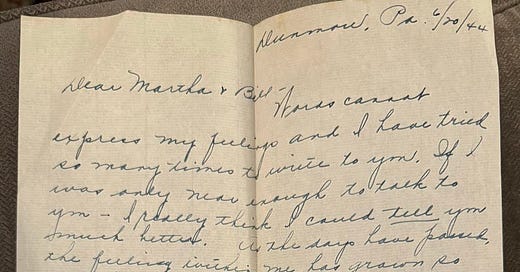 Dunmore, Pa. 6/20/44
Dear Martha & Bill -
Words cannot
express my feelings and I have tried
so many times to write to you. If I
was only near enough to talk to
you - I really think I could tell you
much better. As the days have passed,
the feeling within me has grown so